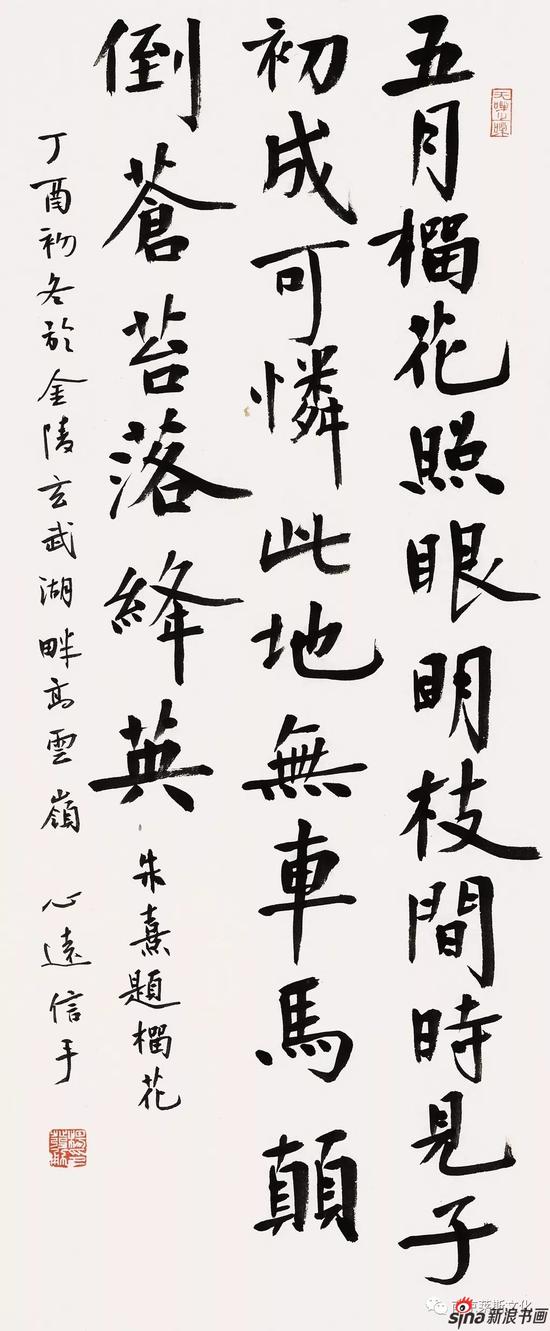 五月榴花照眼明枝間時見子
初成可憐此地無車馬顛
倒蒼苔落絳英
朱熹題榴花
丁酉初冬於金陵玄武湖畔高雲嶺 心遠信手
莱斯文化
sina新浪书画